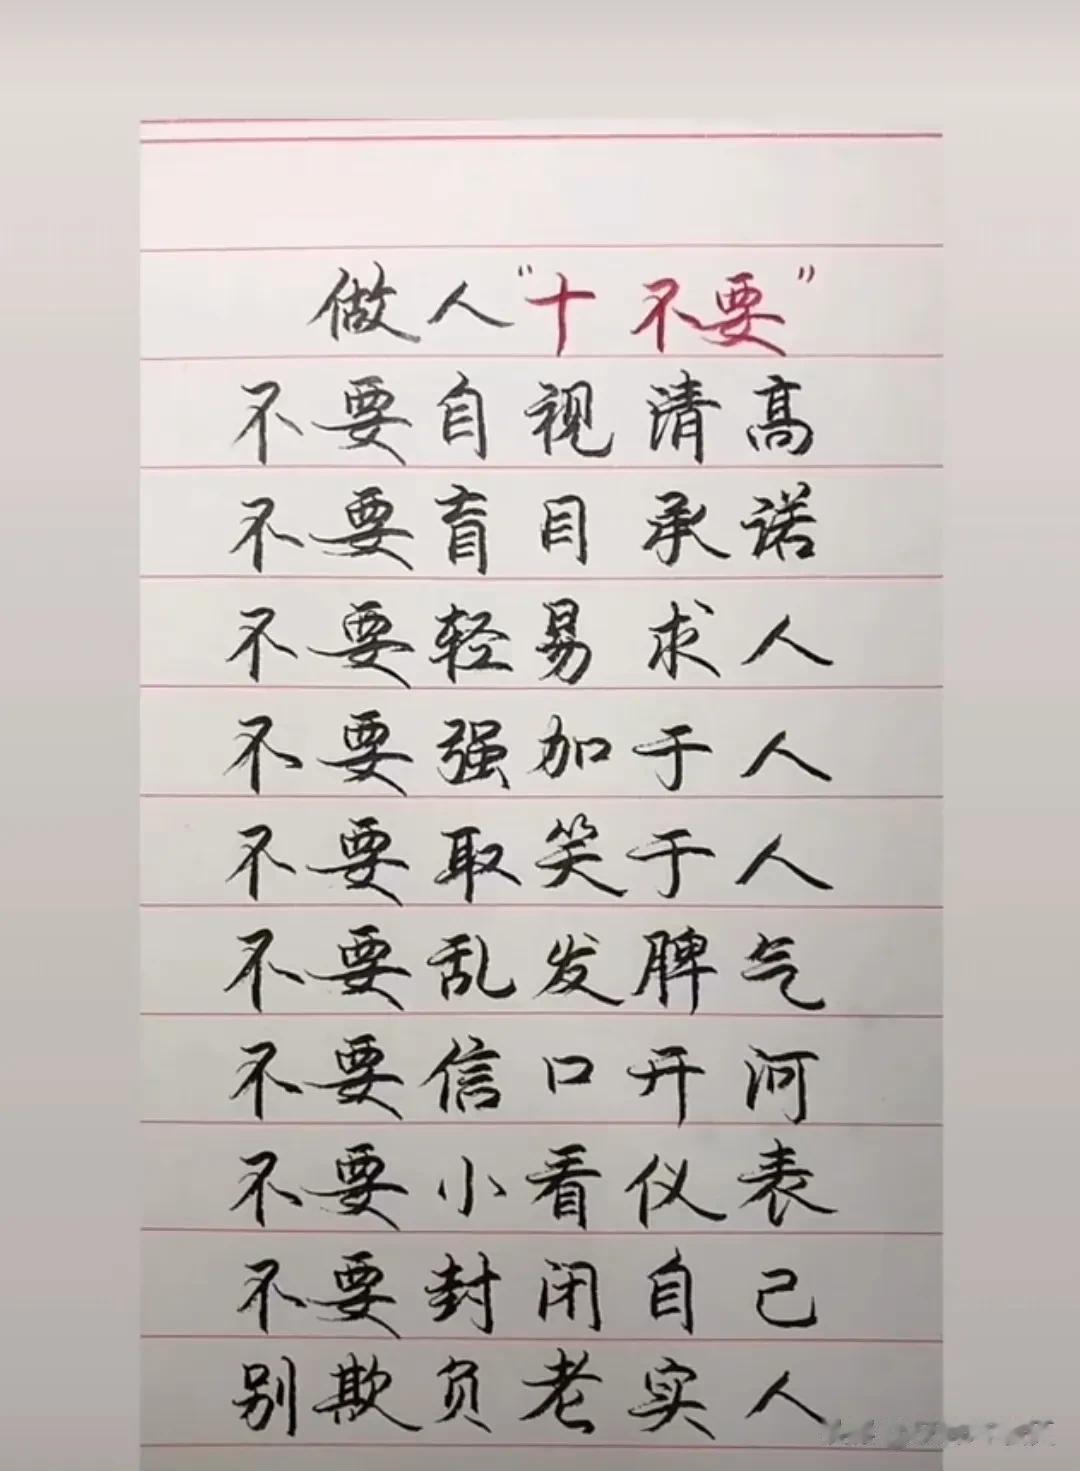 做人“十不要”
不要自视清高
不要盲目承诺
不要轻易求人
不要强加于人
不要取笑于人
不要乱发脾气
不要信口开河
不要小看仪表
不要封闭自己
别欺负老实人